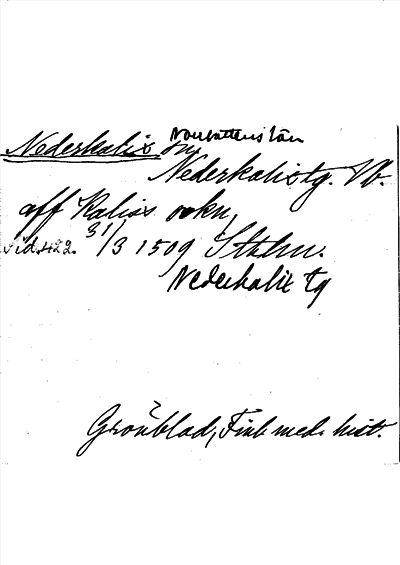 Norrbottens län
Nederkalix sn,
Nederkalix tg. Vb.
aff Kaliss sokn,
sid. 422. 31/3 1509 Sthlm.
Nederkalix tg
Grönblad, Finl. med. hist.